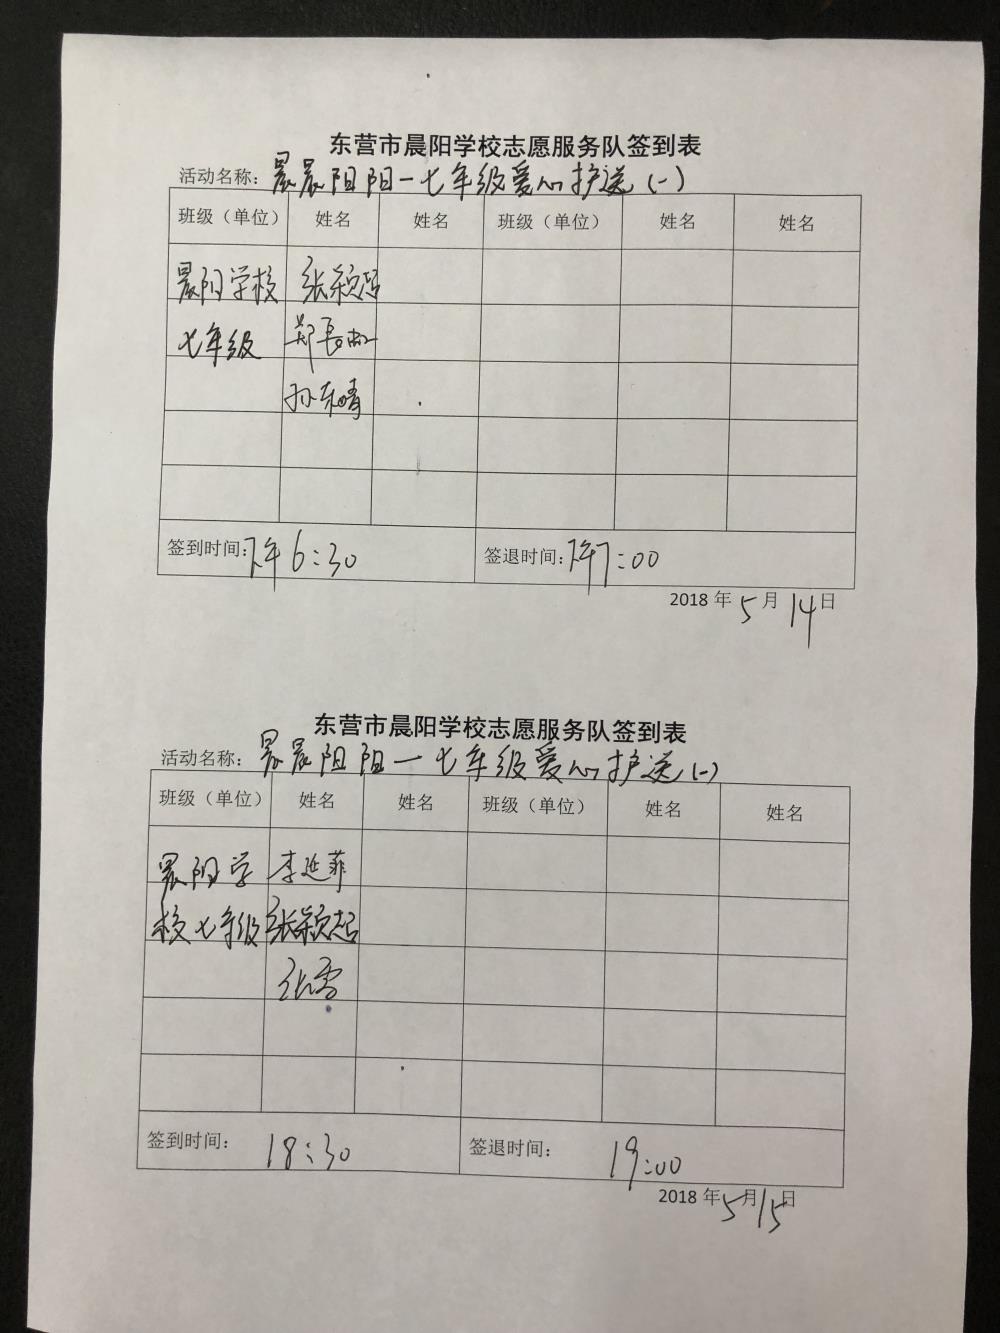 东营市晨阳学校志愿服务队签到表
活动名称：晨晨阳阳一七年级爱心护送(一)
班级（单位） 姓名 姓名 班级（单位） 姓名 姓名
晨阳学校 张颖超
七年级 郑
孙东晴
签到时间：下午6:30 签退时间：下午7:00
2018年5月14日
东营市晨阳学校志愿服务队签到表
活动名称：晨晨阳阳一七年级爱心护送(一)
班级（单位） 姓名 姓名 班级（单位） 姓名 姓名
晨阳学 李延菲
校七年级 张颖超
张雪
签到时间： 18:30 签退时间： 19:00
2018年5月15日